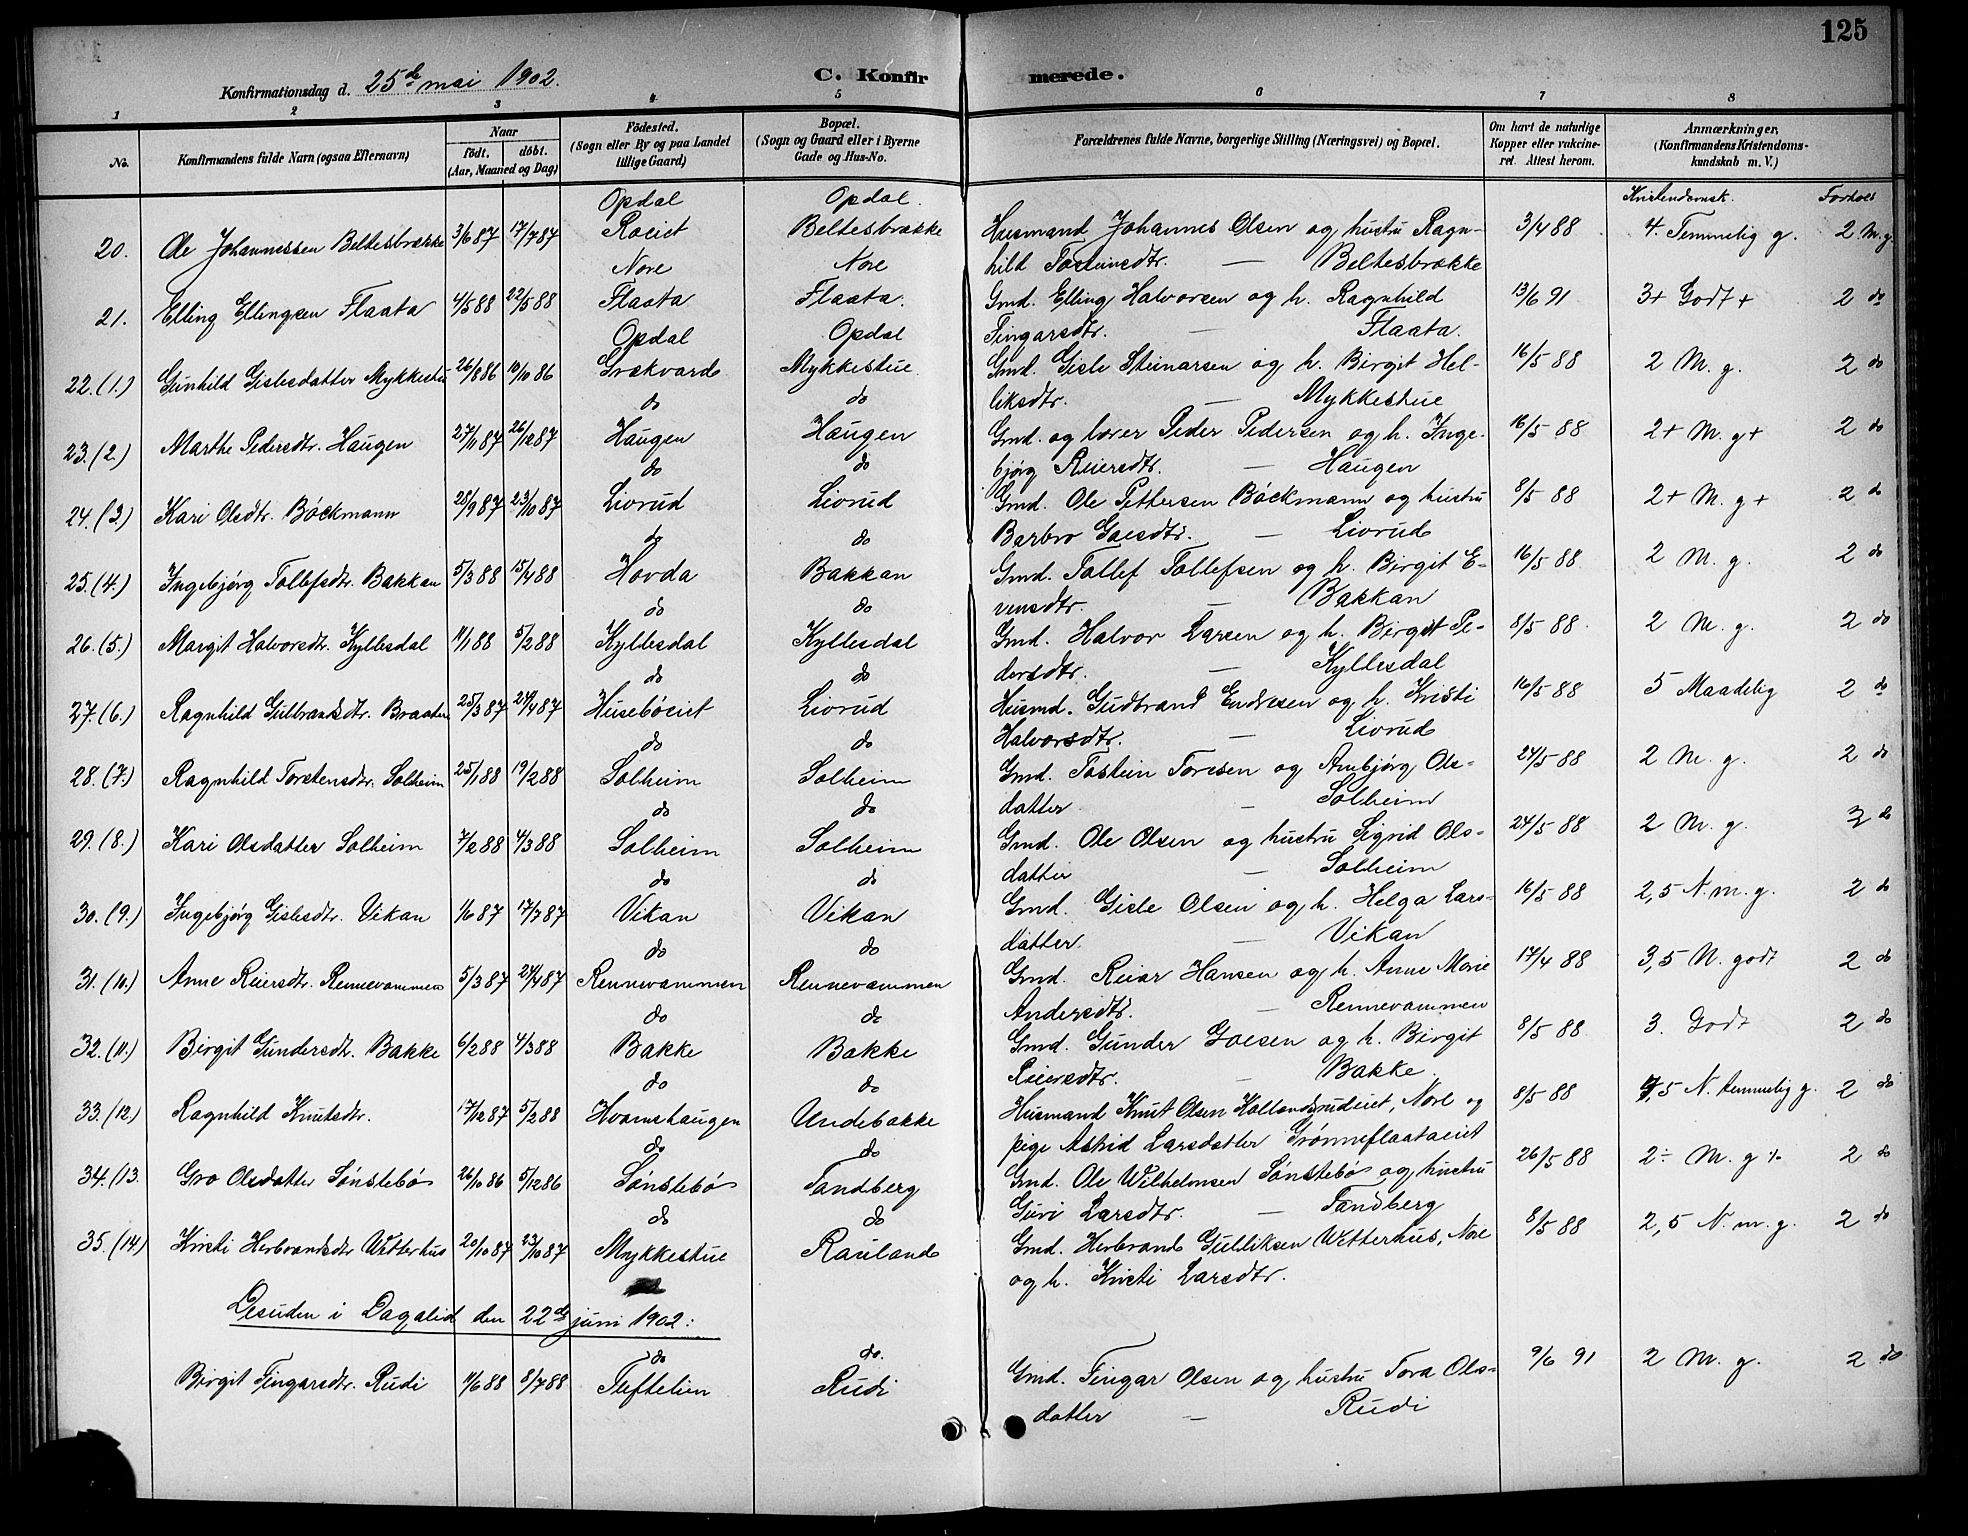 125
Konfirmationsdag d. 25de mai 1902.
C. Konfirmerede.
1 2 3 4 5 6 7 8
No. Konfirmandens fulde Navn (ogsaa Efternavn) Naar født. døbt. (Aar, Maaned og Dag) Fødested. (Sogn eller By og paa Landet tillige Gaard) Bopæl. (Sogn og Gaard eller i Byerne Gade og Hus-No. Forældrenes fulde Navne, borgerlige Stilling (Næringsvei) og Bopæl. Om havt de naturlige Kopper eller vakcineret. Attest herom. Anmærkninger, (Konfirmandens Kristendomskundskab m. V.)
Opdal Opdal. Kristendomsk. Forhold
20. Ole Johannessen Beltesbrække 3/6 87 17/7 87 Roeiet Beltesbrække Husmand Johannes Olsen og hustru Ragn- 3/4 88 4. Temmelig g. 2. M. g.
Nore Nore hild Tosteinsdtr. — Beltesbrække
21. Elling Ellingsen Flaata 4/5 88 22/5 88 Flaata Flaata. Gmd. Elling Halvorsen og h. Ragnhild 13/6 91 3+ Godt + 2 do
Opdal Opdal Fingarsdtr. — Flaata.
22. (1.) Gunhild Gislesdatter Mykkestu 26/8 86 10/10 86 Grækvard Mykkestue. Gmd. Gisle Steinarsen og h. Birgit Hel- 16/5 88 2 M. g. 2 do
do do liksdtr. — Mykkestue
23. (2.) Marthe Pedersdtr. Haugen 27/11 87 26/12 87 Haugen Haugen Gmd. og lærer Peder Pedersen og h. Inge- 16/5 88 2+ M. g+ 2 do
do do bjørg Reiersdtr. — Haugen
24. (3.) Kari Olsdtr. Böckmann 28/9 87 23/10 87 Livrud Livrud Gmd. Ole Pettersen Böckmann og hustru 8/5 88 2+ M. g+ 2 do
do do Barbro Goesdtr. — Livrud
25. (4.) Ingebjørg Tollefsdtr. Bakkan 5/3 88 15/4 88 Hovda Bakkan Gmd. Tollef Tollefsen og h. Birgit E- 16/5 88 2 M. g. 2 do
do do vensdtr. — Bakkan
26. (5.) Margit Halvorsdtr. Kyllesdal 11/1 88 5/2 88 Kyllesdal Kyllesdal Gmd. Halvor Larsen og h. Birgit Pe- 8/5 88. 2 M. g. 2 do
do do dersdtr. — Kyllesdal
27. (6.) Ragnhild Gulbrandsdtr. Braaten 25/3 87 24/4 87 Husebøeiet Livrud Husmd. Gudbrand Endresen og h. Kristi 16/5 88 5 Maadelig 2 do
do do Halvorsdtr. — Livrud
28. (7.) Ragnhild Torstensdtr. Solheim 25/1 88 19/2 88 Solheim Solheim Gmd. Tostein Toresen og Anebjørg Ols- 24/5 88 2 M. g. 2 do
do do datter — Solheim
29. (8.) Kari Olsdatter Solheim 7/2 88 4/3 88 Solheim Solheim Gmd. Ole Olsen og hustru Sigrid Ols- 24/5 88 2 M. g. 3 do
do do datter — Solheim
30. (9.) Ingebjørg Gislesdtr. Vikan 1/6 87 17/7 87 Vikan Vikan Gmd. Gisle Olsen og h. Helga Lars- 16/5 88 2,5 N. m. g. 2 do
do do datter. — Vikan
31. (10.) Anne Reiersdtr. Rennevammen 5/3 87 24/4 87 Rennevammen Rennevammen Gmd. Reiar Hansen og h. Anne Marie 17/4 88 3,5 N. godt 2 do
do do Andersdtr. — Rennevammen
32. (11.) Birgit Gundersdtr. Bakke 6/2 88 4/3 88 Bakke Bakke Gmd. Gunder Goesen og h. Birgit 8/5 88. 3. Godt 2 do
do do Reiersdtr. — Bakke.
33. (12.) Ragnhild Knutsdtr. 17/12 87 5/2 88 Hvamshaugen Undebakke Husmand Knut Olsen Hallandsrudeiet, Nore og 8/5 88 4,5 N. temmelig g. 2 do
do do pige Astrid Larsdatter Grønneflaataeiet
34. (13. Gro Olsdatter Sønstebø 26/10 86 5/12 86 Sønstebø Tandberg Gmd. Ole Wilhelmsen Sønstebø og hustru 26/5 88 2÷ M. g ÷ 2 do
do do Guri Larsdtr. — Tandberg
35. (14) Kristi Herbrandsdtr Wetterhus 20/10 87 23/10 87 Mykkestue Rauland Gmd. Herbrand Gulliksen Wetterhus, Nore 8/5 88 2,5 N. m. g. 2 do
og h. Kristi Larsdtr.
Desuden i Dagalid den 22de juni 1902:
do do.
Birgit Fingarsdtr. Rudi 11/6 88 8/7 88 Tuftelien Rudi Gmd. Fingar Olsen og hustru Tora Ols- 9/6 91 2 M. g. 2 do
datter — Rudi